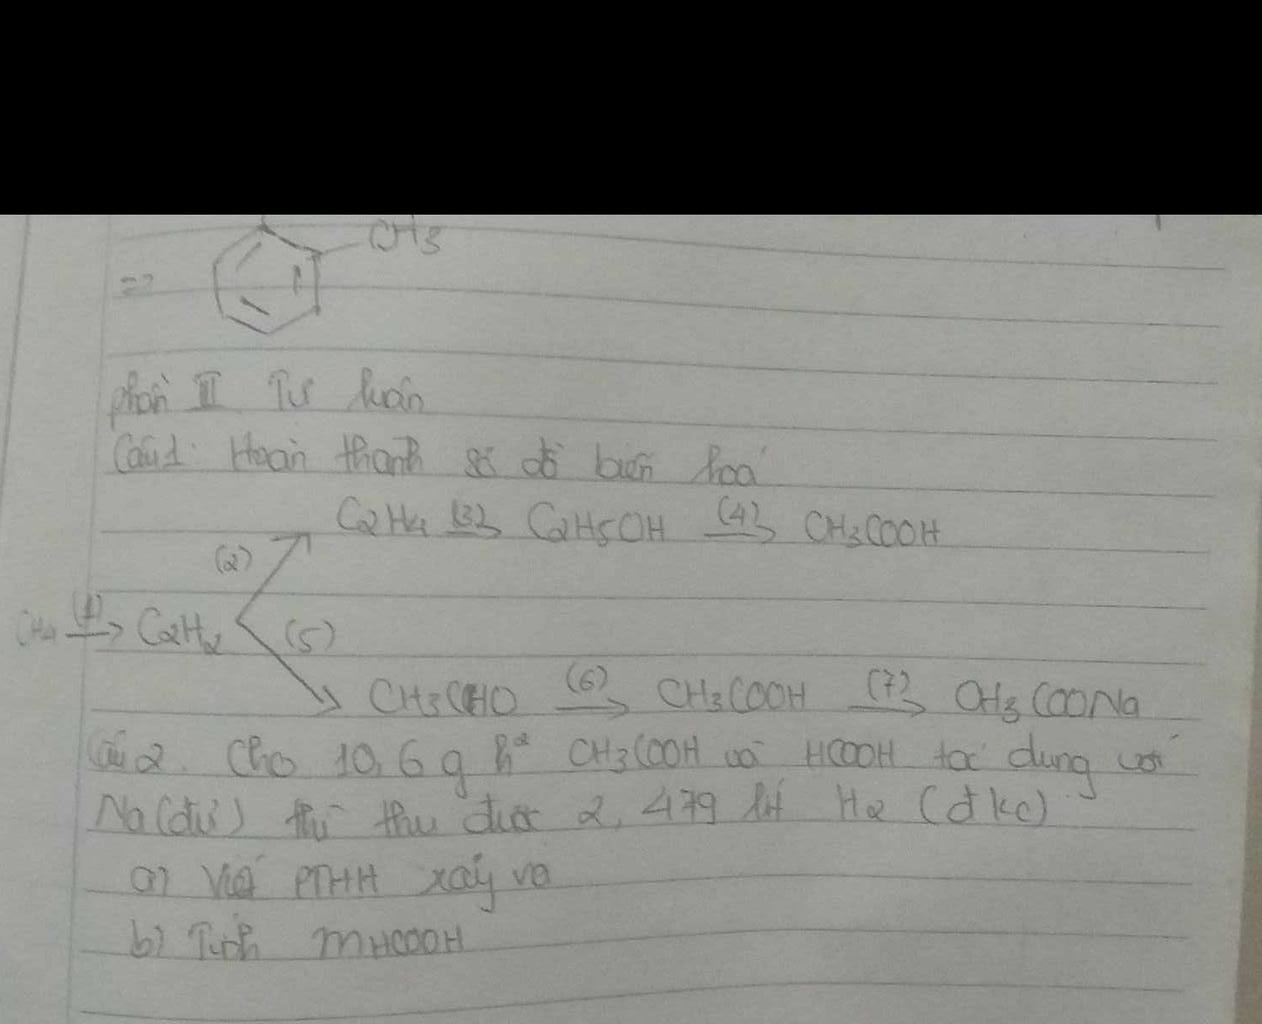 CH3
=>
phần II Tự luận
Câu 1: Hoàn thành sơ đồ biến hoá
C2H4 (3) C2H5OH (4) CH3COOH
(2)
CH4 (1) C2H2 (5)
CH3CHO (6) CH3COOH (7) CH3COONa
Câu 2. Cho 10,6 g h² CH3COOH và HCOOH tác dụng với
Na(dư) thì thu được 2,479 lít H2 (đkc)
a) Viết PTHH xảy ra
b) Tính mHCOOH